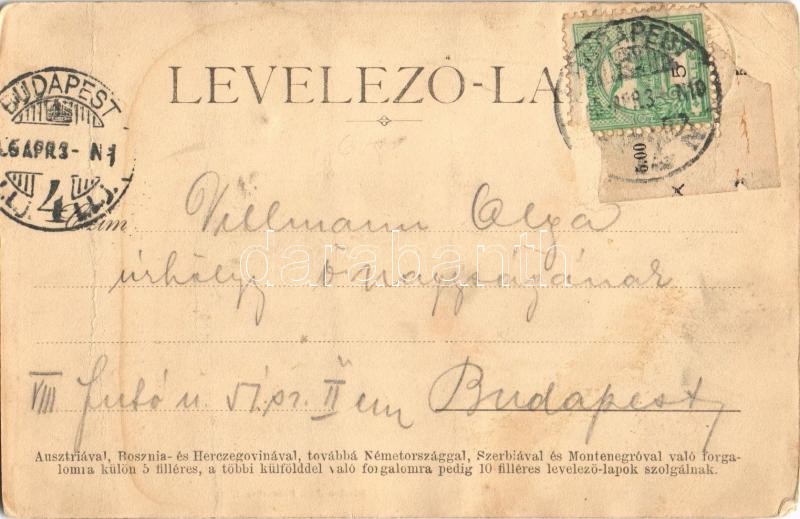 LEVELEZŐ-LA
BUDAPEST
5
BUDAPEST
APR.3- N1
4
6.00
Czim
Villmann Olga
úrhölgy ő nagyságának
darabanth
VIII Futó u. 51 sz. II em Budapest
Ausztriával, Bosznia- és Herczegovinával, továbbá Németországgal, Szerbiával és Montenegróval való forga-
lomra külön 5 filléres, a többi külfölddel való forgalomra pedig 10 filléres levelező-lapok szolgálnak.